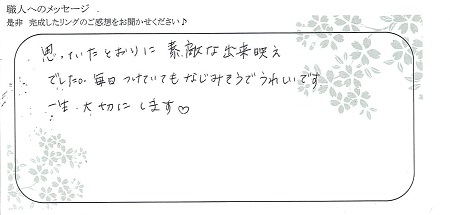 職人へのメッセージ .
是非 完成したリングのご感想をお聞かせください♪
思っていたとおりに 素敵な出来映え
でした。毎日つけていてもなじみそうでうれしいです
一生 大切にします♡